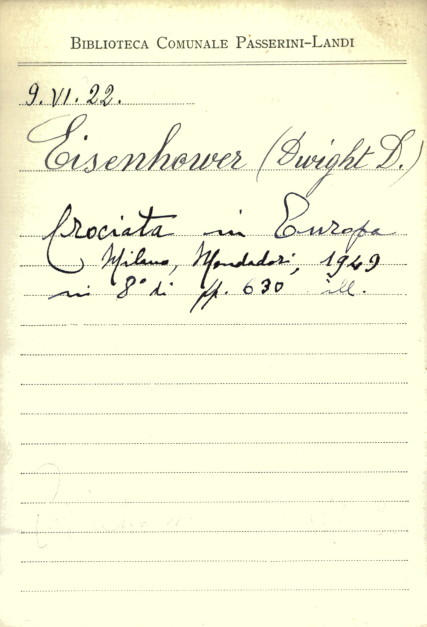 BIBLIOTECA COMUNALE PASSERINI-LANDI
9. VI. 22.
Eisenhower (Dwight D.)
Crociata in Europa
Milano, Mondadori, 1949
in 8° di pp. 630 ill.